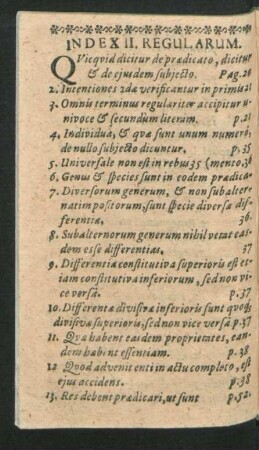 INDEX II. REGULARUM.
QVicqvid dicitur de prædicato, dicitur
& de ejusdem subjecto. Pag. 20
2. Intentiones 2dæ verificantur in primis 21
3. Omnis terminus regulariter accipitur u-
nivoce & secundum literam. p. 21
4. Individua, & quæ sunt unum numero,
de nullo subjecto dicuntur. p. 35
5. Universale non est in rebus 35 (mento, 36
6. Genus & species sunt in eodem prædica-
7. Diversorum generum, & non subalter-
natim positorum, sunt specie diversæ dif-
ferentiæ. 36
8. Subalternorum generum nihil vetat eas-
dem esse differentias. 37
9. Differentia constitutiva superioris est et-
iam constitutiva inferiorum, sed non vi-
ce versâ. p. 37
10. Differentiæ divisivæ inferioris sunt quoq;
divisivæ superioris, sed non vice versâ p. 37
11. Qvæ habent easdem proprietates, ean-
dem habent essentiam. p. 38
12 Qvod advenit enti in actu completo, est
ejus accidens. p. 38
13. Res debent prædicari, ut sunt p. 52.